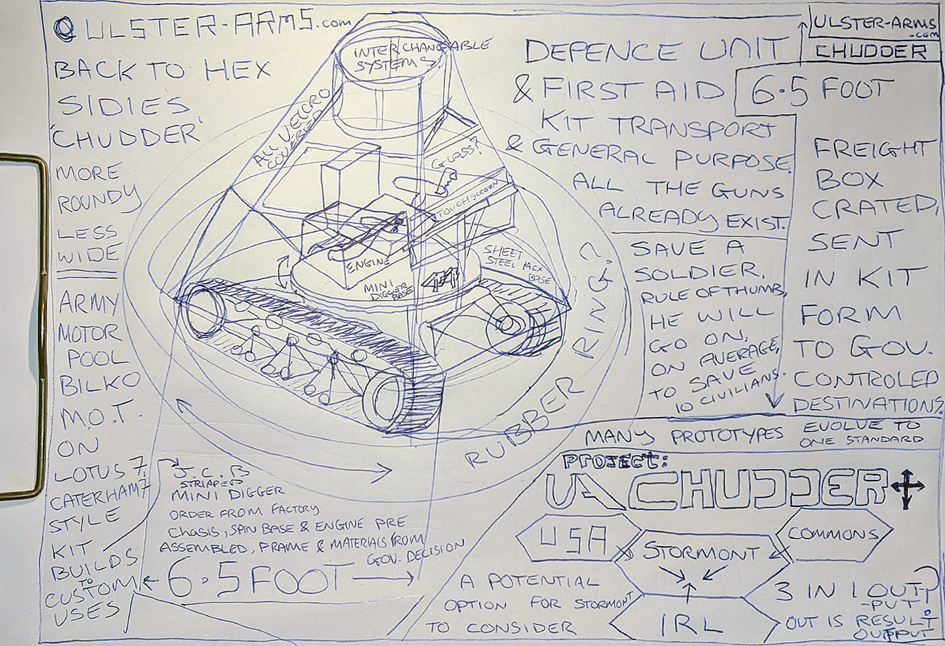 ULSTER-ARMS.com
BACK TO HEX
SIDIES
'CHUDDER'
MORE
ROUNDY
LESS
WIDE
ARMY
MOTOR
POOL
BILKO
M.O.T.
ON
LOTUS 7,
CATERHAM 7
STYLE
KIT
BUILDS
TO
CUSTOM
USES
INTERCHANGEABLE
SYSTEMS
ALL VELCRO
COVERED
GLASS?
TOUCHSCREEN
ENGINE
MINI
DIGGER
BASE
SHEET
STEEL HEX
BASE
RUBBER RING?
DEFENCE UNIT
& FIRST AID
KIT TRANSPORT
& GENERAL PURPOSE.
ALL THE GUNS
ALREADY EXIST.
SAVE A
SOLDIER,
RULE OF THUMB,
HE WILL
GO ON,
ON AVERAGE,
TO SAVE
10 CIVILIANS.
ULSTER-ARMS
.com
CHUDDER
6.5 FOOT
FREIGHT
BOX
CRATED,
SENT
IN KIT
FORM
TO GOV.
CONTROLED
DESTINATIONS
MANY PROTOTYPES EVOLVE TO
ONE STANDARD
J.C.B
STRIAPED
MINI DIGGER
ORDER FROM FACTORY
CHASIS, SPIN BASE & ENGINE PRE
ASSEMBLED, FRAME & MATERIALS FROM
GOV. DECISION
6.5 FOOT
PROJECT:
UA CHUDDER
USA
STORMONT
COMMONS
IRL
A POTENTIAL
OPTION FOR STORMONT
TO CONSIDER
3 IN 1 OUT?
-PUT!
OUT IS RESULT
OUTPUT